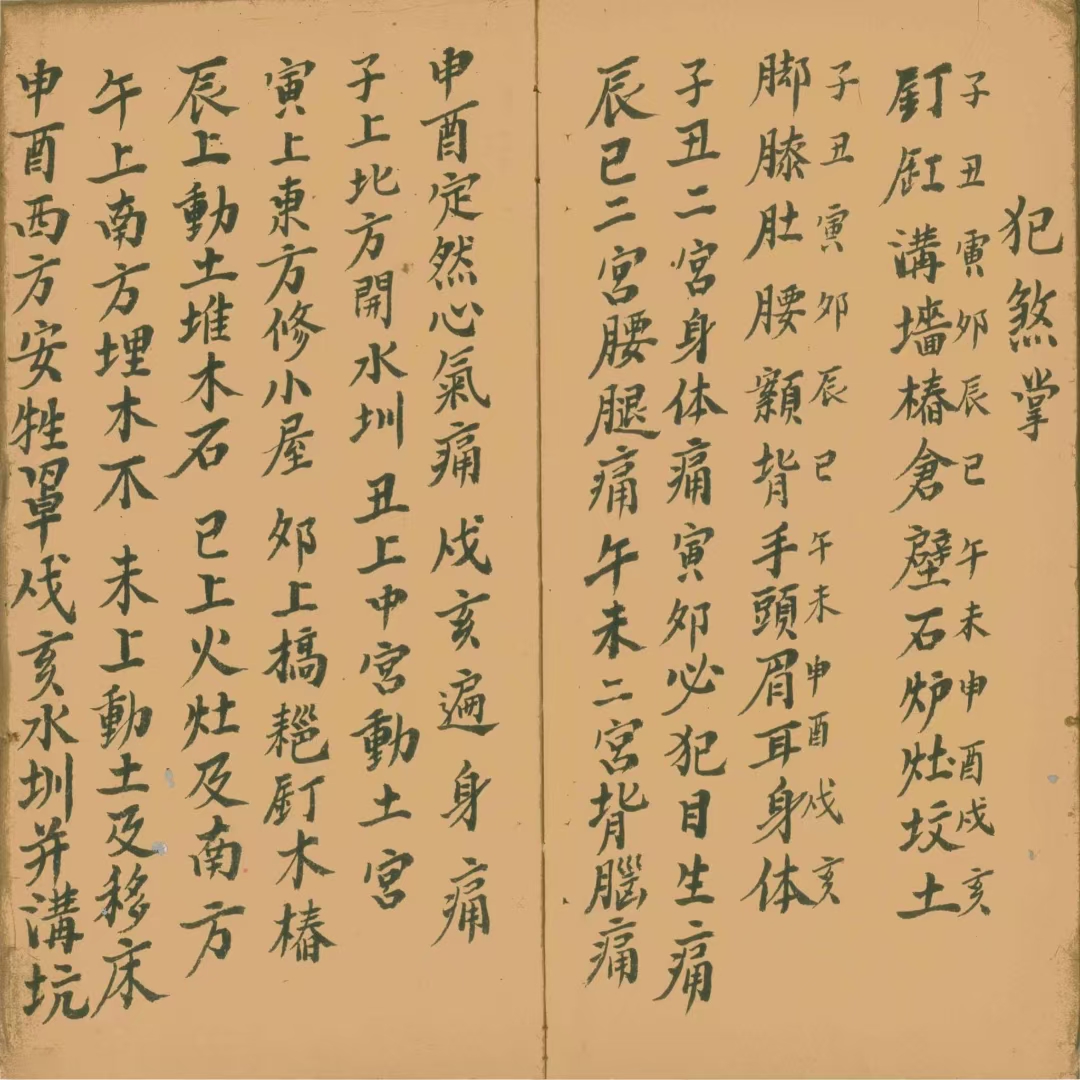 犯煞掌
子丑寅卯辰巳午未申酉戌亥
釘缸溝墻樁倉壁石炉灶坟土
子丑寅卯辰巳午未申酉戌亥
脚膝肚腰顙背手頭眉耳身体
子丑二宮身体痛寅卯必犯目生痛
辰巳二宮腰腿痛午未二宮背腦痛
申酉定然心氣痛戌亥遍身痛
子上北方開水圳 丑上中宮動土宮
寅上東方修小屋 卯上搞耙釘木樁
辰上動土堆木石 巳上火灶及南方
午上南方埋木不 未上動土及移床
申酉西方安牲罩戌亥水圳并溝坑